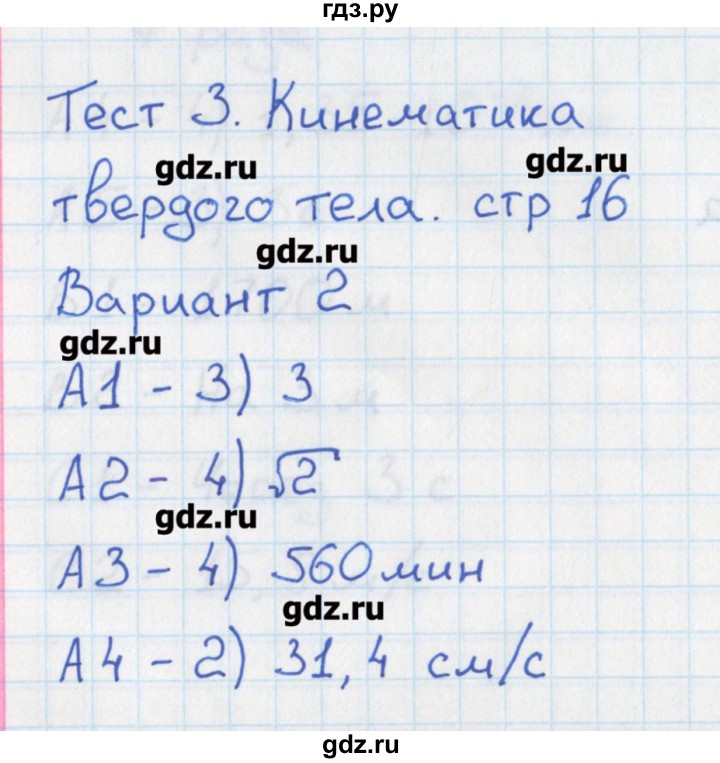 гдз.ру
Тест 3. Кинематика
gdz.ru
gdz.ru
твердого тела. стр 16
gdz.ru
Вариант 2
gdz.ru
А1 - 3) 3
А2 - 4) √2
gdz.ru
А3 - 4) 560 мин
gdz.ru
А4 - 2) 31,4 см/с
gdz.ru